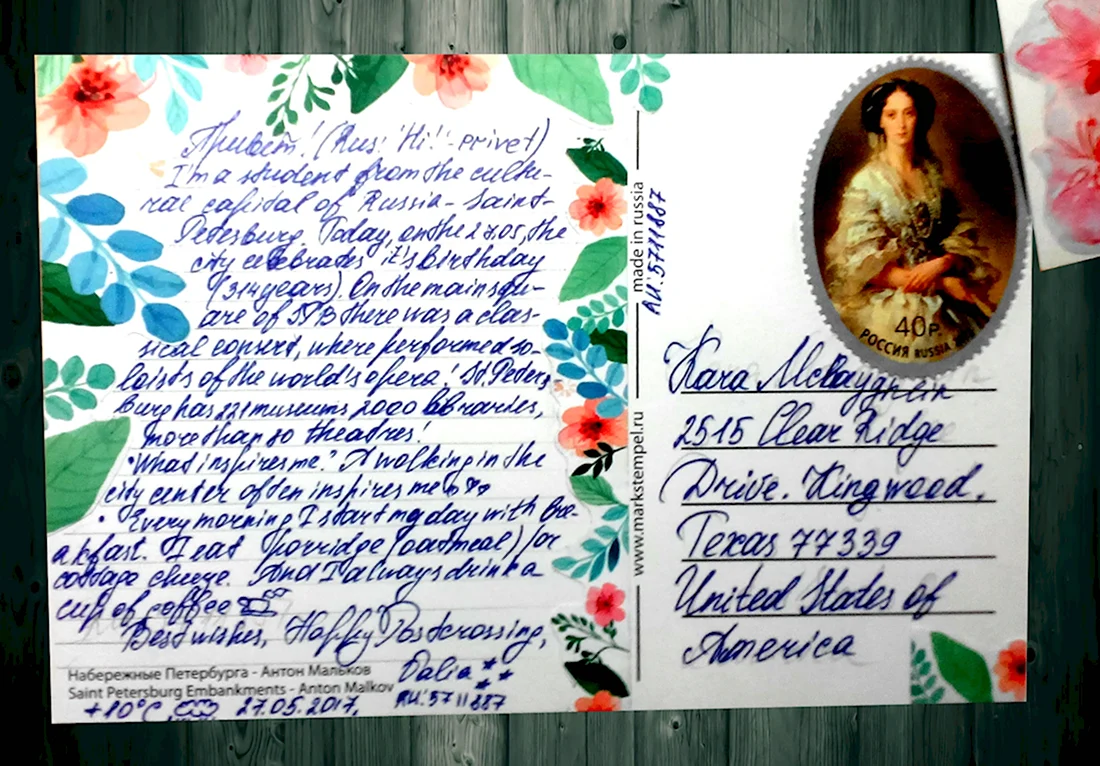 Привет! (Rus: 'Hi!' - privet)
I'm a student from the cultu-
ral capital of Russia - Saint-
Petersburg. Today, on the 27.05, the
city celebrates it's birthday
(314 years). On the main squ-
are of SPB there was a clas-
sical consert, where performed so-
loists of the world's opera! St. Peters-
burg has 221 museums 2000 libraries,
more than 80 theatres!
• "What inspires me?" A walking in the
city center often inspires me
• Every morning I start my day with bre-
akfast. I eat porridge (oatmeal) or
cottage cheese. And I always drink a
cup of coffee
Best wishes, Happy Postcrossing,
Dalia
RU-5711687
Набережные Петербурга - Антон Мальков
Saint Petersburg Embankments - Anton Malkov
+10°C, 27.05.2017,
made in russia
www.markstempel.ru
RU-5711687
40р
РОССИЯ RUSSIA
Kara
2515 Clear Ridge
Drive. Kingwood,
Texas 77339
United States of
America